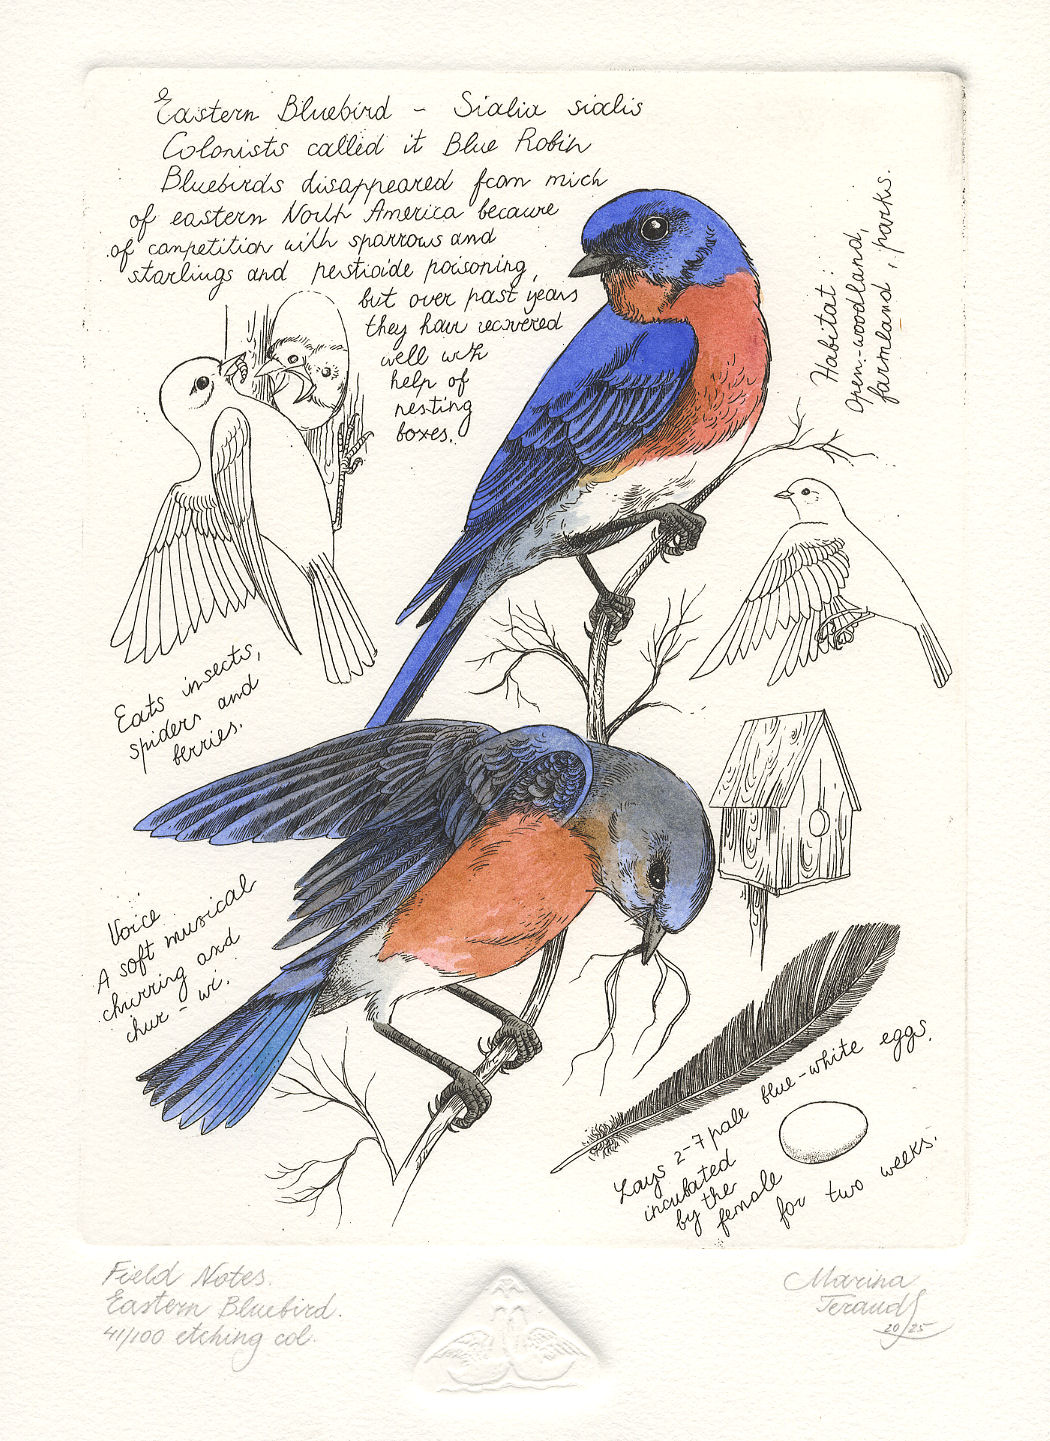 Eastern Bluebird - Sialia sialis
Colonists called it Blue Robin
Bluebirds disappeared from much
of eastern North America because
of competition with sparrows and
starlings and pesticide poisoning,
but over past years
they have recovered
well with
help of
nesting
boxes.
Habitat:
Open-woodland,
farmland, parks.
Eats insects,
spiders and
berries.
Voice
A soft musical
churring and
chur - wi.
Lays 2-7 pale blue-white eggs.
incubated
by the
female
for two weeks.
Field Notes.
Eastern Bluebird.
41/100 etching col.
Marina
Terauds
20/25